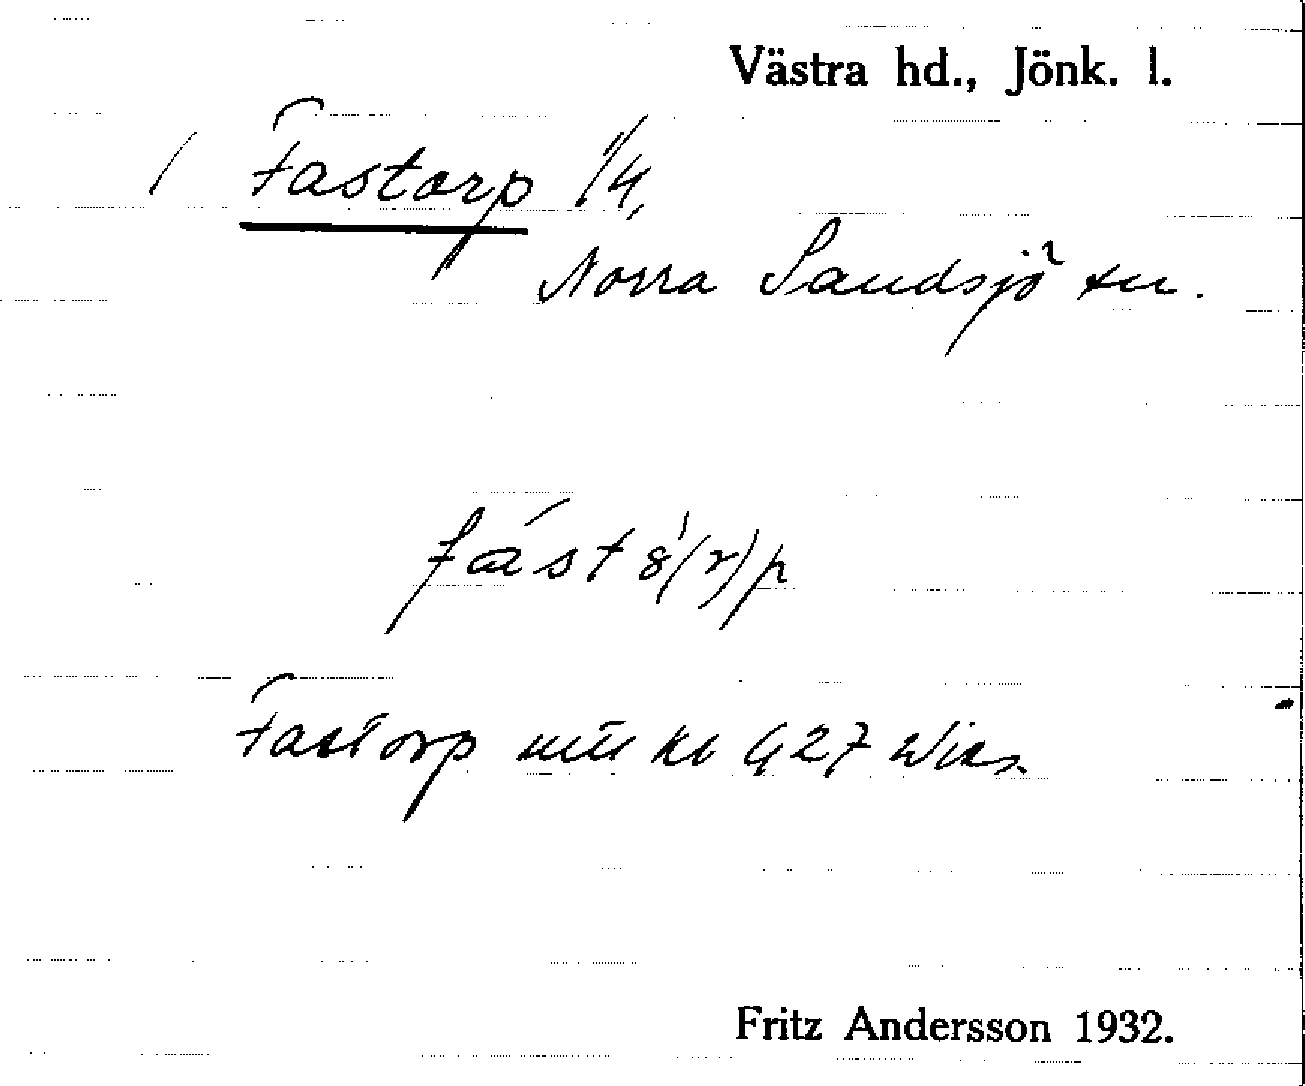 Västra hd., Jönk. l.
/ Fastorp 1/4,
Norra Sandsjö sn.
fást ó̀(r)p
Fastorp
Fritz Andersson 1932.